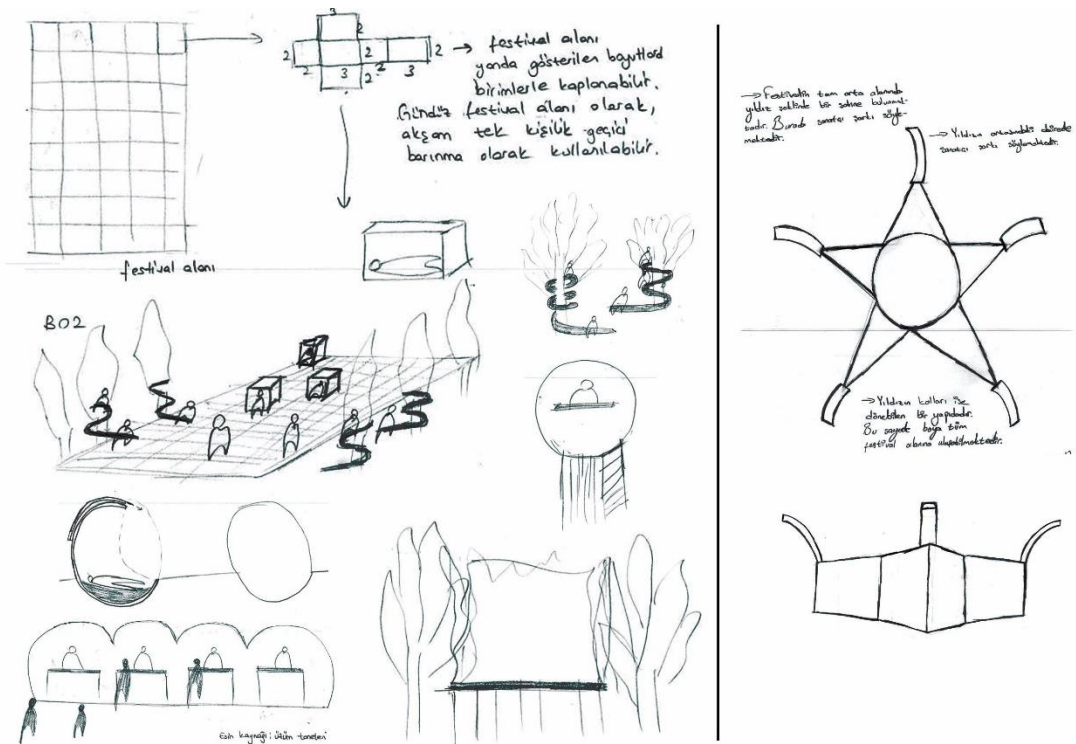 3
2
2 2 2 2
2 3 2 3
→ festival alanı
yanda gösterilen boyutlard
birimlerle kaplanabilir.
Gündüz festival alanı olarak,
akşam tek kişilik geçici
barınma olarak kullanılabilir.
festival alanı
B02
Esin kaynağı: üzüm taneleri
→ Festivalin tam orta alanında
yıldız şeklinde bir sahne bulunmak-
tadır. Burada sanatçı şarkı söyle-
mektedir.
→ Yıldızın ortasındaki dairede
sanatçı şarkı söylemektedir.
→ Yıldızın kolları ise
dönebilen bir yapıdadır.
Bu sayede boya tüm
festival alanına ulaşabilmektedir.